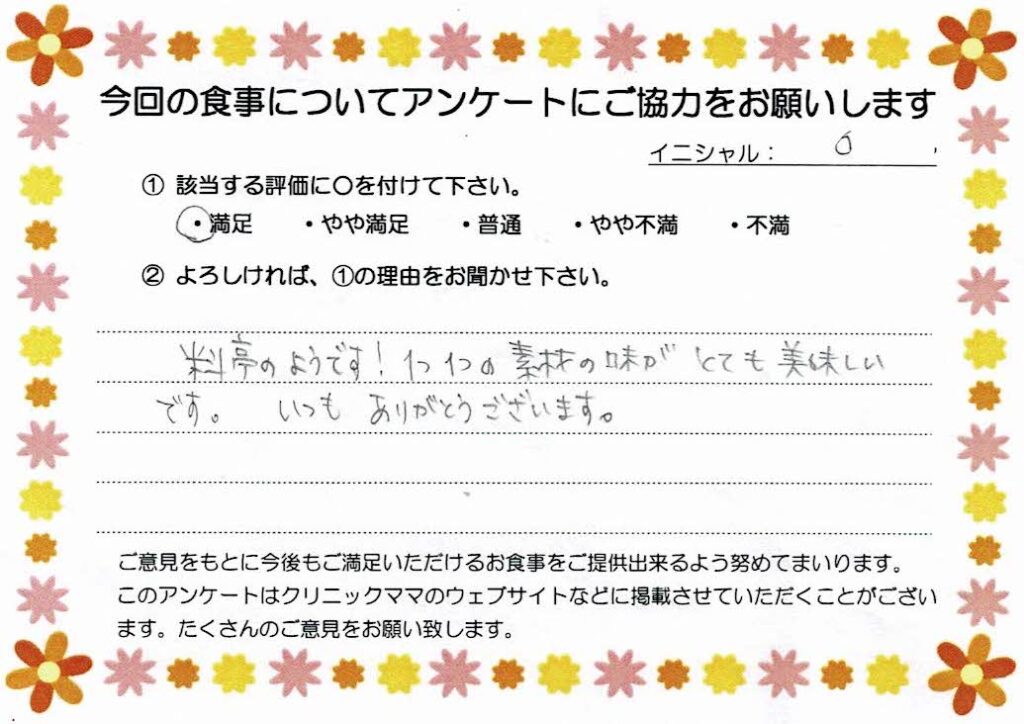 今回の食事についてアンケートにご協力をお願いします
イニシャル： O
① 該当する評価に〇を付けて下さい。
・満足 ・やや満足 ・普通 ・やや不満 ・不満
② よろしければ、①の理由をお聞かせ下さい。
料亭のようです! 1つ1つの素材の味がとても美味しい
です。 いつもありがとうございます。
ご意見をもとに今後もご満足いただけるお食事をご提供出来るよう努めてまいります。
このアンケートはクリニックママのウェブサイトなどに掲載させていただくことがござい
ます。たくさんのご意見をお願い致します。